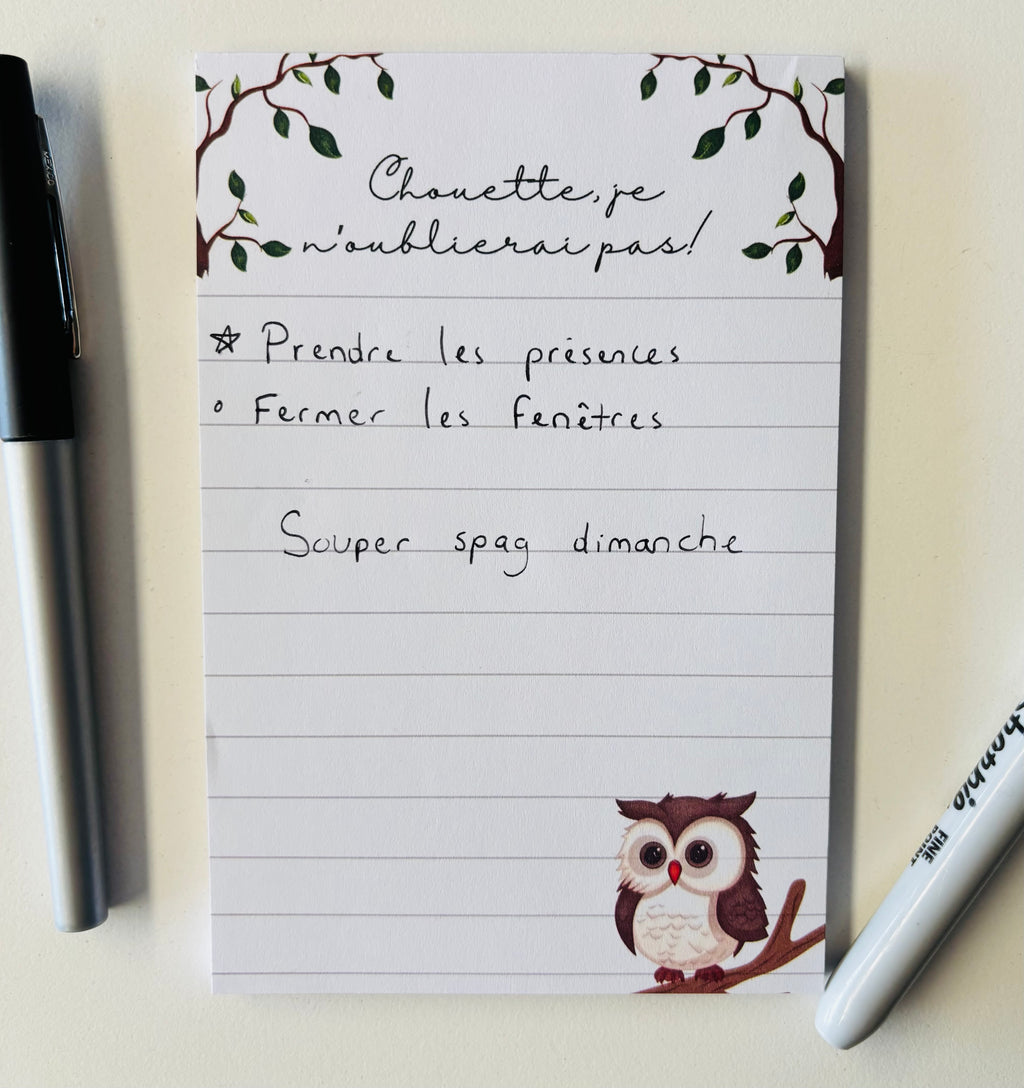 Chouette, je
n'oublierai pas!
☆ Prendre les présences
° Fermer les fenêtres
Souper spag dimanche
MEXICO
Sharpie
FINE
POINT